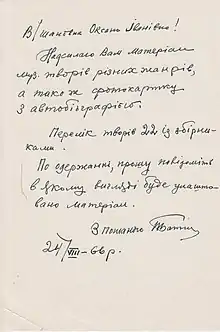 В/Шановна Оксано Іванівно!
Надсилаю Вам матеріали
муз. творів різних жанрів,
а також фотокартку
з автобіографією.
Перелік творів 22 із збірни-
ками.
По одержанні, прошу повідомить
в якому вигляді буде улашто-
вано матеріали.
З пошаною
24/VIII-66 р.